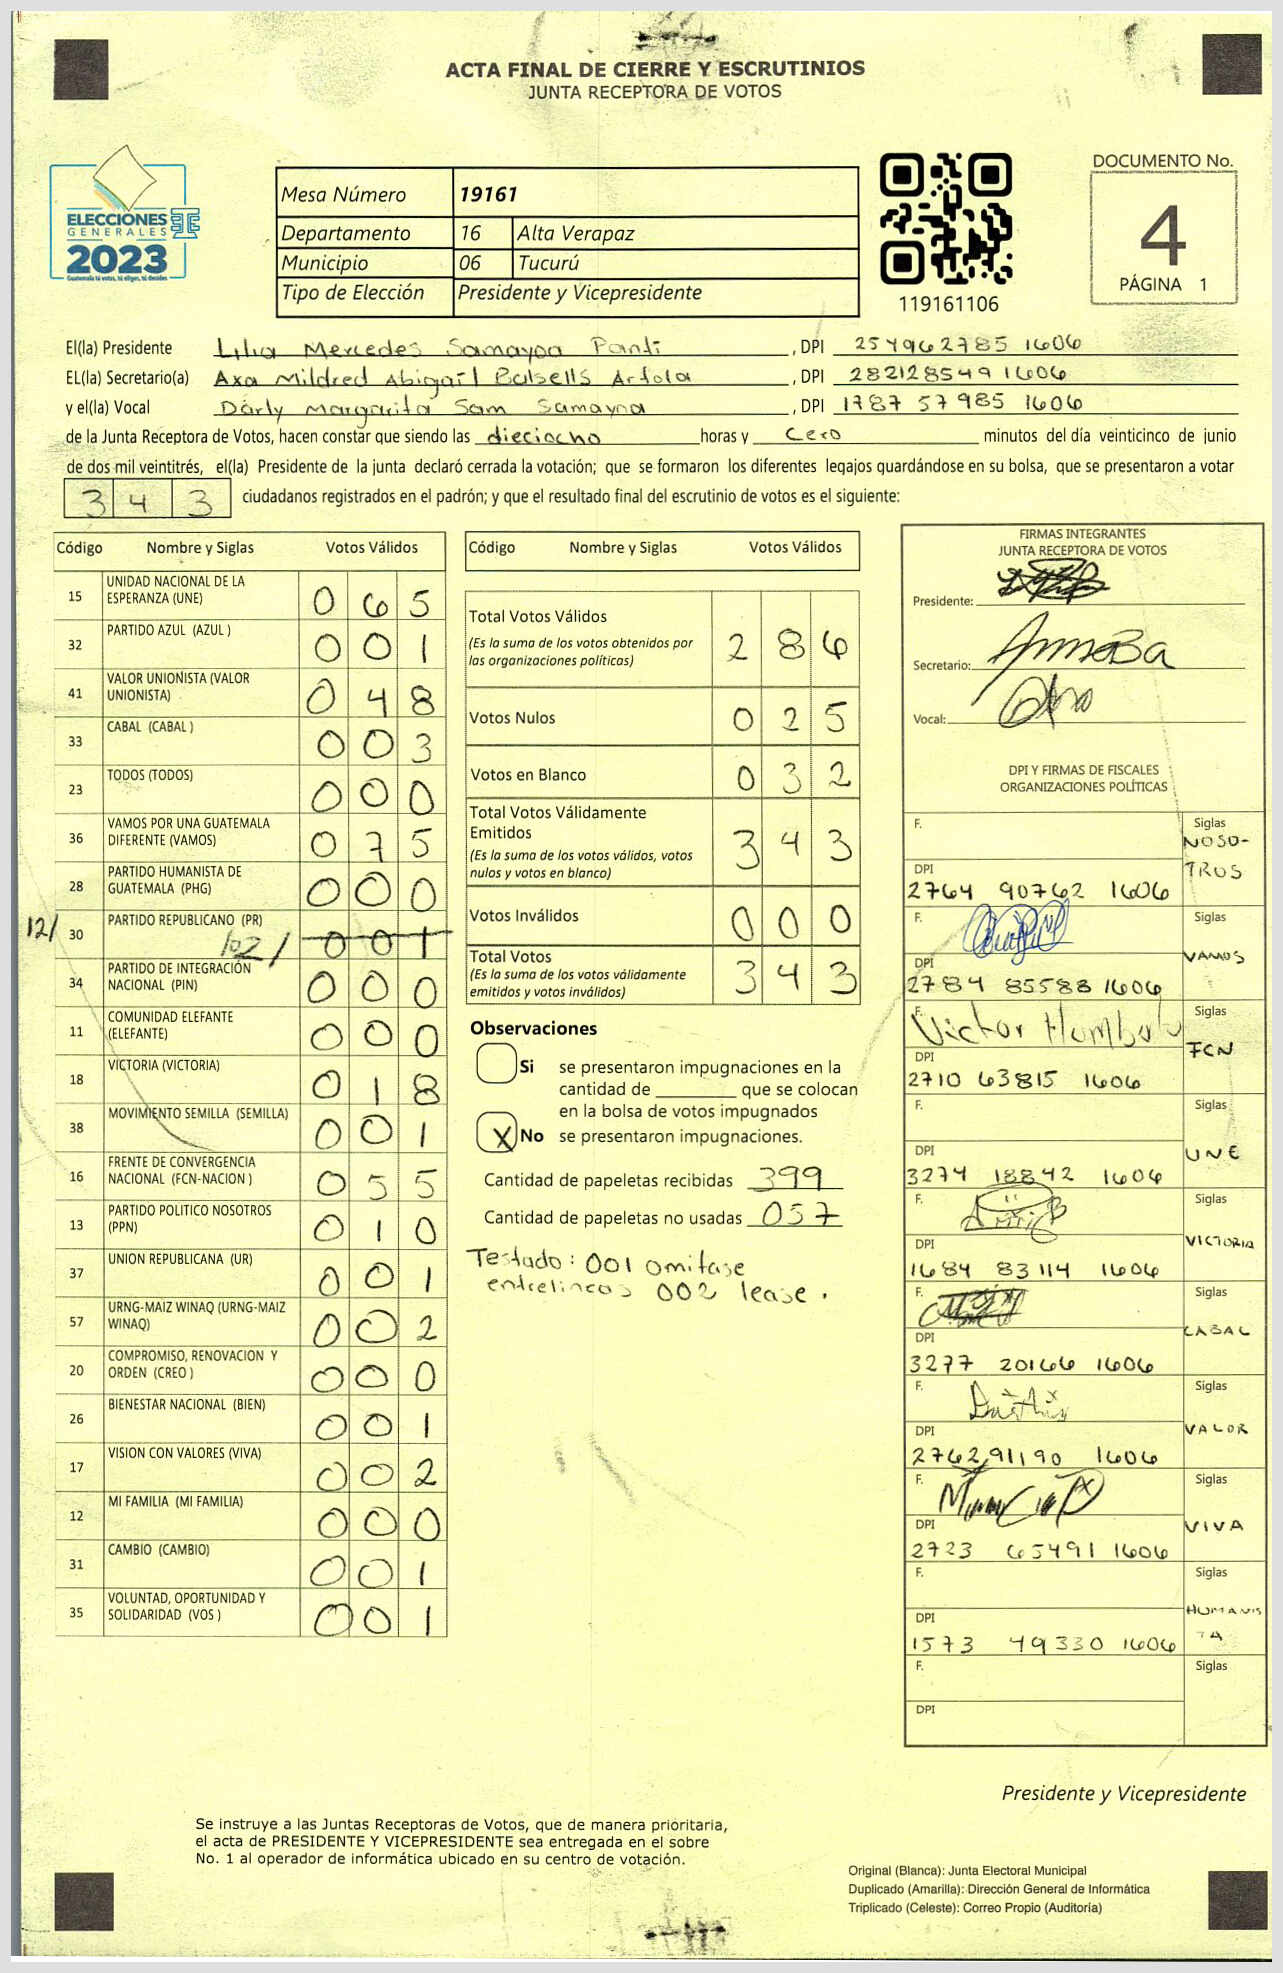 ACTA FINAL DE CIERRE Y ESCRUTINIOS
JUNTA RECEPTORA DE VOTOS
ELECCIONES
GENERALES
2023
Guatemala tú votas, tú eliges, tú decides
Mesa Número 19161
Departamento 16 Alta Verapaz
Municipio 06 Tucurú
Tipo de Elección Presidente y Vicepresidente
119161106
DOCUMENTO No.
4
PÁGINA 1
El(la) Presidente Lilia Mercedes Samayoa Panti, DPI 254962785 1606
EL(la) Secretario(a) Axa Mildred Abigail Balsells Artola, DPI 282128549 1606
y el(la) Vocal Darly Margarita Sam Samayoa, DPI 1787 57985 1606
de la Junta Receptora de Votos, hacen constar que siendo las dieciocho horas y Cero minutos del día veinticinco de junio
de dos mil veintitrés, el(la) Presidente de la junta declaró cerrada la votación; que se formaron los diferentes legajos guardándose en su bolsa, que se presentaron a votar
343 ciudadanos registrados en el padrón; y que el resultado final del escrutinio de votos es el siguiente:
Código Nombre y Siglas Votos Válidos
15 UNIDAD NACIONAL DE LA ESPERANZA (UNE) 065
32 PARTIDO AZUL (AZUL ) 001
41 VALOR UNIONISTA (VALOR UNIONISTA) 048
33 CABAL (CABAL ) 003
23 TODOS (TODOS) 000
36 VAMOS POR UNA GUATEMALA DIFERENTE (VAMOS) 075
28 PARTIDO HUMANISTA DE GUATEMALA (PHG) 000
12/ 30 PARTIDO REPUBLICANO (PR) 001
34 PARTIDO DE INTEGRACIÓN NACIONAL (PIN) 000
11 COMUNIDAD ELEFANTE (ELEFANTE) 000
18 VICTORIA (VICTORIA) 018
38 MOVIMIENTO SEMILLA (SEMILLA) 001
16 FRENTE DE CONVERGENCIA NACIONAL (FCN-NACION ) 055
13 PARTIDO POLITICO NOSOTROS (PPN) 010
37 UNION REPUBLICANA (UR) 001
57 URNG-MAIZ WINAQ (URNG-MAIZ WINAQ) 002
20 COMPROMISO, RENOVACION Y ORDEN (CREO ) 000
26 BIENESTAR NACIONAL (BIEN) 001
17 VISION CON VALORES (VIVA) 002
12 MI FAMILIA (MI FAMILIA) 000
31 CAMBIO (CAMBIO) 001
35 VOLUNTAD, OPORTUNIDAD Y SOLIDARIDAD (VOS ) 001
Código Nombre y Siglas Votos Válidos
Total Votos Válidos 286
(Es la suma de los votos obtenidos por
las organizaciones políticas)
Votos Nulos 025
Votos en Blanco 032
Total Votos Válidamente
Emitidos 343
(Es la suma de los votos válidos, votos
nulos y votos en blanco)
Votos Inválidos 000
Total Votos 343
(Es la suma de los votos válidamente
emitidos y votos inválidos)
Observaciones
Si se presentaron impugnaciones en la
cantidad de ________ que se colocan
en la bolsa de votos impugnados
X No se presentaron impugnaciones.
Cantidad de papeletas recibidas 399
Cantidad de papeletas no usadas 057
Testado: 001 omitase
entrelineas 002 lease.
FIRMAS INTEGRANTES
JUNTA RECEPTORA DE VOTOS
Presidente:
Secretario:
Vocal:
DPI Y FIRMAS DE FISCALES
ORGANIZACIONES POLÍTICAS
F. Siglas
NOSO-
TROS
DPI
2764 90762 1606
F. Siglas
VAMOS
DPI
2784 85588 1606
F. Victor Humberto Siglas
FCN
DPI
2710 63815 1606
F. Siglas
UNE
DPI
3274 18842 1606
F. Siglas
VICTORIA
DPI
1684 83114 1606
F. Siglas
CABAL
DPI
3277 20166 1606
F. Siglas
VALOR
DPI
2762 91190 1606
F. Siglas
VIVA
DPI
2723 65491 1606
F. Siglas
HUMANIS
TA
DPI
1573 49330 1606
F. Siglas
DPI
Presidente y Vicepresidente
Se instruye a las Juntas Receptoras de Votos, que de manera prioritaria,
el acta de PRESIDENTE Y VICEPRESIDENTE sea entregada en el sobre
No. 1 al operador de informática ubicado en su centro de votación.
Original (Blanca): Junta Electoral Municipal
Duplicado (Amarilla): Dirección General de Informática
Triplicado (Celeste): Correo Propio (Auditoría)